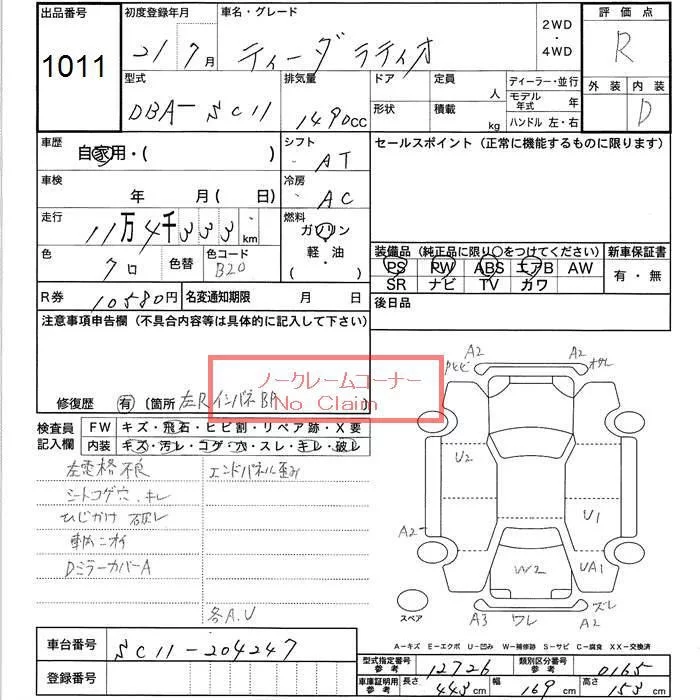 出品番号 初度登録年月 車名・グレード 2WD・4WD 評価点
1011 21 7月 ティーダ ラティオ R
型式 排気量 ドア 定員 人 ディーラー・並行 外装 内装
DBA-SC11 1490cc 形状 積載 kg モデル年式 年 D
ハンドル 左・右
車歴 自家用・( ) シフト AT セールスポイント(正常に機能するものに限ります)
車検 年 月(日) 冷房 AC
走行 11万4千333km 燃料 ガソリン 軽・油 ・( )
色 クロ 色替 色コード B20
装備品(純正品に限り○をつけてください) 新車保証書
PS PW ABS エアB AW 有・無
SR ナビ TV カワ
R券 10580円 名変通知期限 月 日 後日品
注意事項申告欄(不具合内容等は具体的に記入して下さい)
ノークレームコーナー
No Claim
修復歴 有 〔箇所 左Rインパネ BP
検査員記入欄 FW キズ・飛石・ヒビ割・リペア跡・X要
内装 キズ・汚レ・コゲ・穴・スレ・キレ・破レ
左電格不良 エンドパネル歪み
シートコゲ穴、キレ
ひじかけ 破レ
車内ニオイ
DミラーカバーA
各A.U
A2 A2
U2
A2 U1
W2 UA1
スペア A3 ワレ ズレ A2
A-キズ E-エクボ U-凹み W-補修跡 S-サビ C-腐食 XX-交換済
車台番号 SC11-204247
登録番号
型式指定番号 参考 12726 類別区分番号 参考 0165
車庫証明用 参考 長さ 443cm 幅 169cm 高さ 153cm